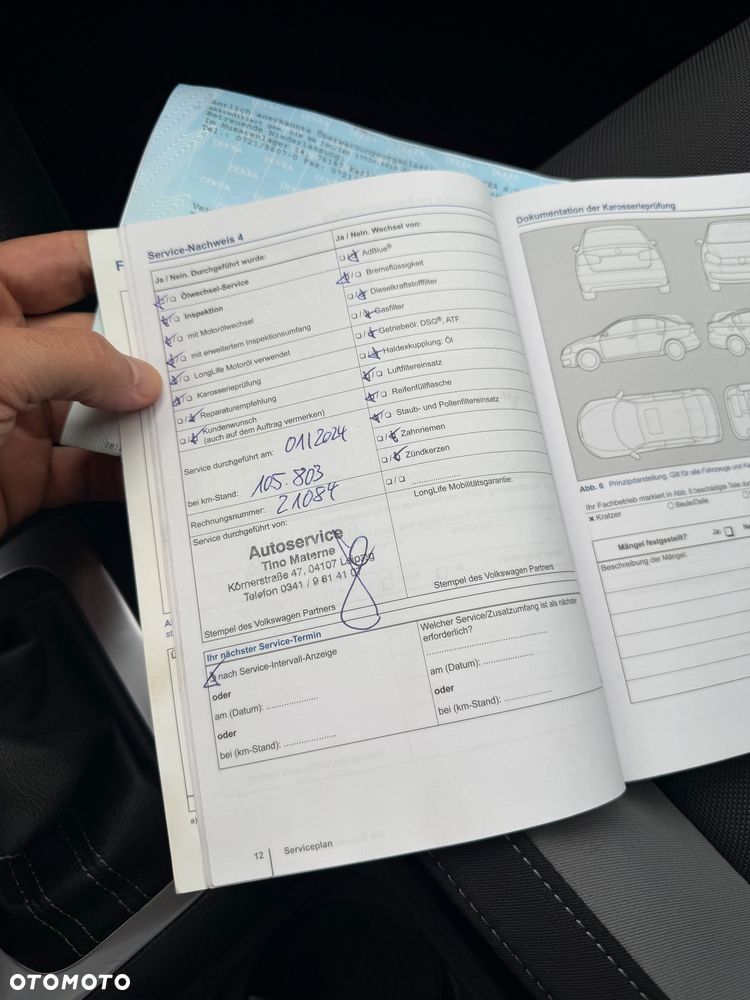 Amtlich anerkannte Überwachungsorganisation
Betreuende Niederlassung:
Im Husarenlager 14, 76187
Tel.: 0721/5607-0 Fax:
DEKRA
Service-Nachweis 4
Ja / Nein. Durchgeführt wurde:
Ölwechsel-Service
Inspektion
mit Motorölwechsel
mit erweitertem Inspektionsumfang
LongLife Motoröl verwendet
Karosserieprüfung
Reparaturempfehlung
Kundenwunsch
(auch auf dem Auftrag vermerken)
Service durchgeführt am: 01/2024
bei km-Stand: 105.803
Rechnungsnummer: 21084
Service durchgeführt von:
Autoservice
Tino Materne
Körnerstraße 47, 04107 Leipzig
Telefon 0341 / 9 61 41 07
Stempel des Volkswagen Partners
Ja / Nein. Wechsel von:
AdBlue®
Bremsflüssigkeit
Dieselkraftstofffilter
Gasfilter
Getriebeöl: DSG®, ATF
Haldexkupplung: Öl
Luftfiltereinsatz
Reifenfüllflasche
Staub- und Pollenfiltereinsatz
Zahnriemen
Zündkerzen
LongLife Mobilitätsgarantie:
Stempel des Volkswagen Partners
Ihr nächster Service-Termin
nach Service-Intervall-Anzeige
oder
am (Datum): ....................
oder
bei (km-Stand): ....................
Welcher Service/Zusatzumfang ist als nächster
erforderlich?
am (Datum): ....................
oder
bei (km-Stand): ....................
12 Serviceplan
Dokumentation der Karosserieprüfung
Abb. 6 Prinzipdarstellung. Gilt für alle Fahrzeuge und
Ihr Fachbetrieb markiert in Abb. 6 beschädigte Teile
Kratzer Beule/Delle
Mängel festgestellt? Ja:
Beschreibung der Mängel:
a)
OTOMOTO